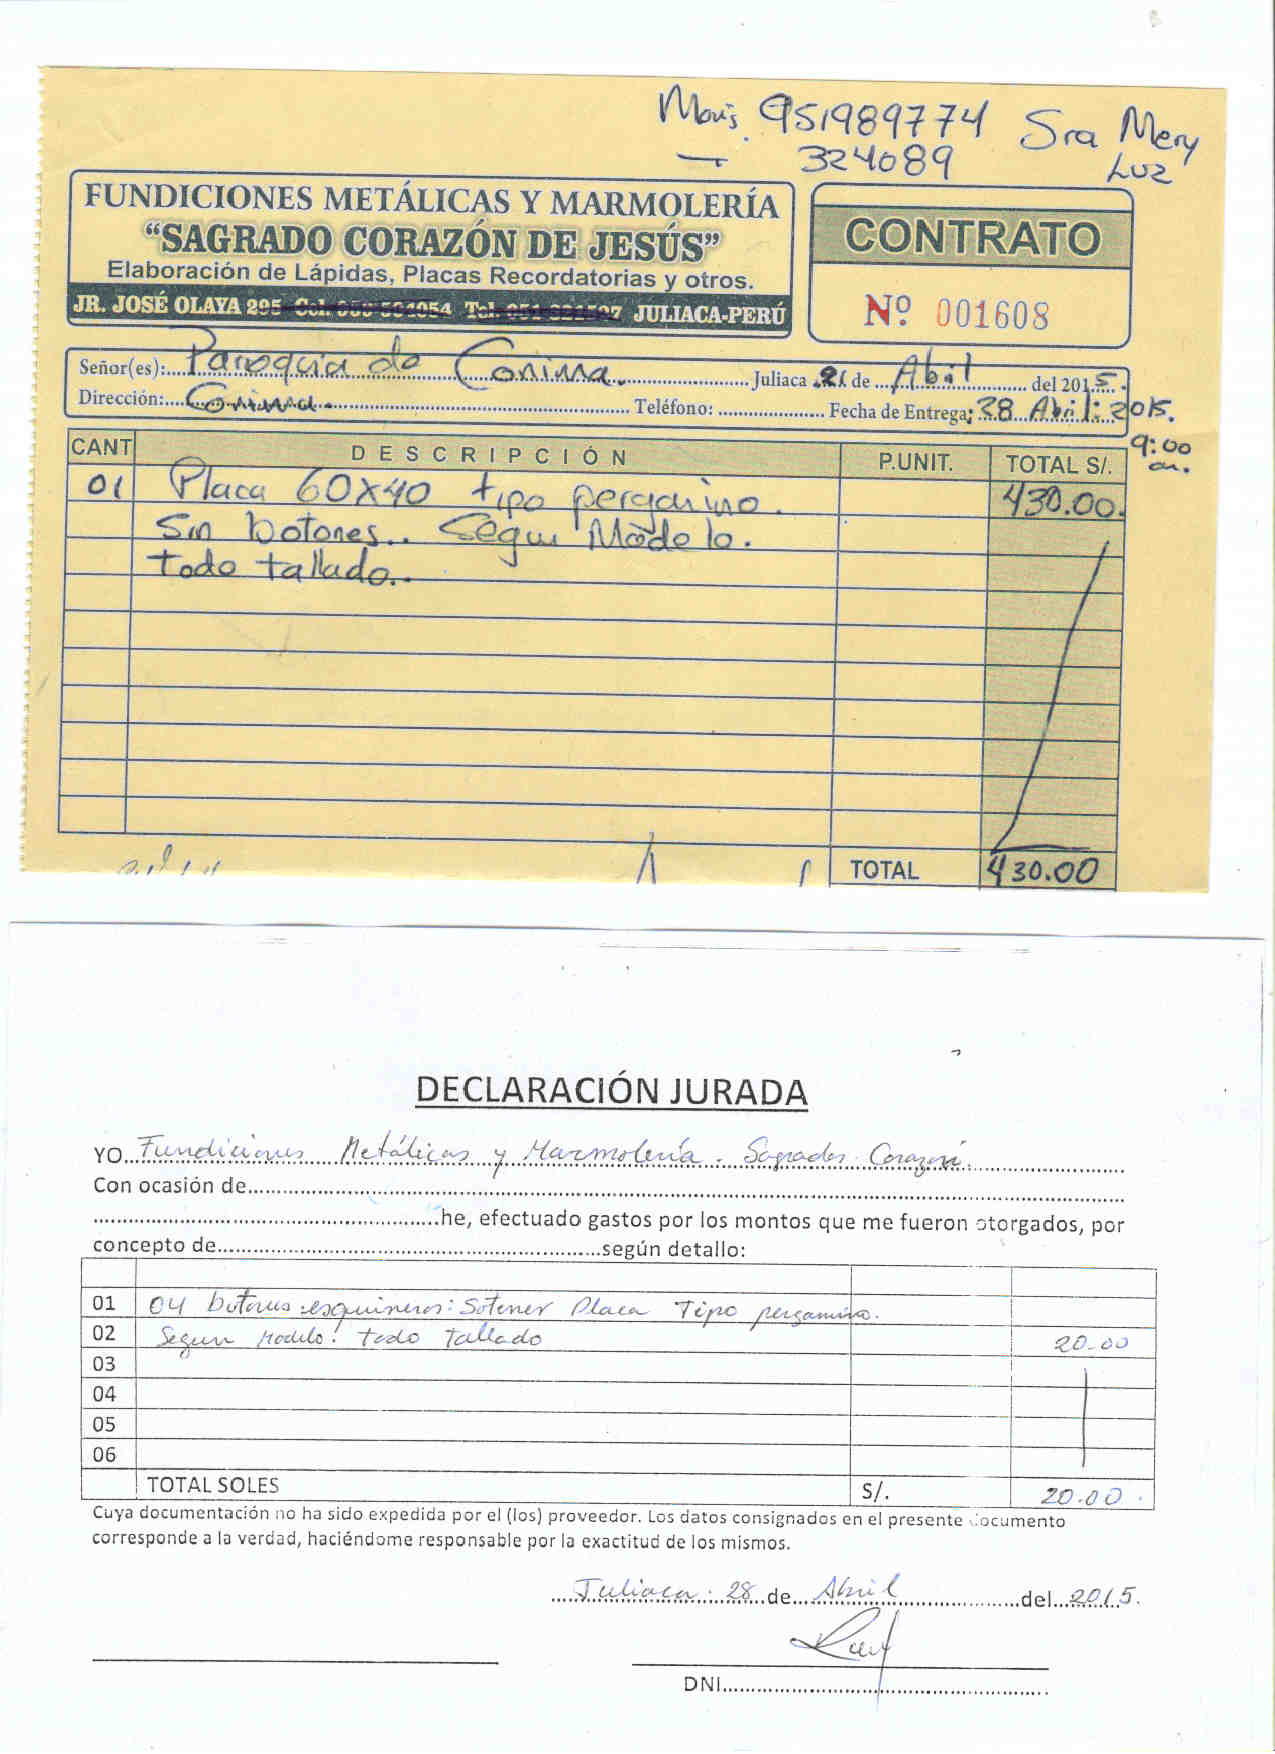 Movis. 951989774 Sra Mery
324089 Luz
FUNDICIONES METÁLICAS Y MARMOLERÍA
“SAGRADO CORAZÓN DE JESÚS”
Elaboración de Lápidas, Placas Recordatorias y otros.
JR. JOSÉ OLAYA 295 JULIACA-PERÚ
CONTRATO
Nº 001608
Señor(es): Parroquia de Conima. Juliaca 21 de Abril del 2015.
Dirección: Conima. Teléfono: Fecha de Entrega: 28 Abril: 2015.
9:00 am.
CANT DESCRIPCIÓN P.UNIT. TOTAL S/.
01 Placa 60x40 tipo pergamino. 430.00.
Sin botones.. Segun Modelo.
todo tallado..
TOTAL 430.00
DECLARACIÓN JURADA
YO Fundiciones Metálicas y Marmolería. Sagrados Corazón.
Con ocasión de
he, efectuado gastos por los montos que me fueron otorgados, por
concepto de según detallo:
01 04 botones esquineros: Sotener Placa Tipo pergamino.
02 Segun Modelo: todo tallado 20.00
03
04
05
06
TOTAL SOLES S/. 20.00.
Cuya documentación no ha sido expedida por el (los) proveedor. Los datos consignados en el presente documento
corresponde a la verdad, haciéndome responsable por la exactitud de los mismos.
Juliaca: 28 de Abril del 2015.
DNI